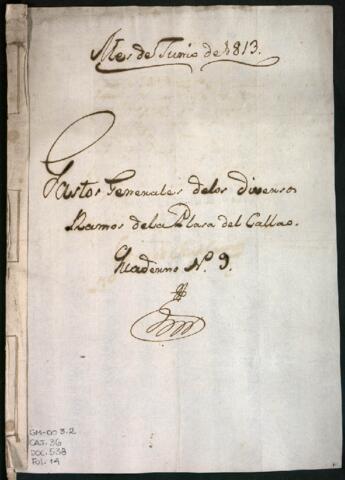 Mes de Junio de 1813.
Gastos Generales delos diversos
Ramos dela Plasa del Callao.
Quaderno Nº. 9.
GM-OO 3.2
CAJ. 36
DOC. 538
Fol. 14